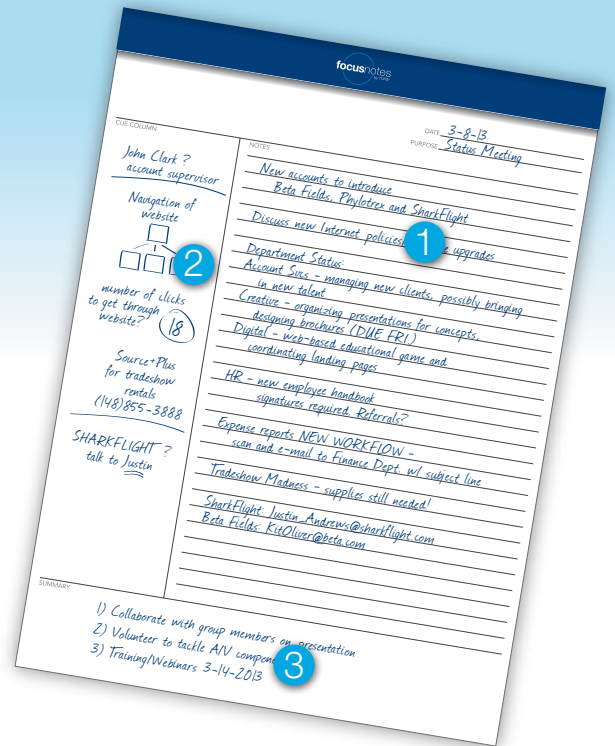 focusnotes
DATE 3-8-13
PURPOSE Status Meeting
CUE COLUMN
John Clark ?
account supervisor
Navigation of
website
2
number of clicks
to get through
website? 18
Source+Plus
for tradeshow
rentals
(148)855-3888
SHARKFLIGHT ?
talk to Justin
NOTES
New accounts to introduce
Beta Fields, Phylotrex and SharkFlight
Discuss new Internet policies, upgrades
1
Department Status:
Account Svcs - managing new clients, possibly bringing
in new talent
Creative - organizing presentations for concepts,
designing brochures (DUE FRI.)
Digital - web-based educational game and
coordinating landing pages
HR - new employee handbook
signatures required. Referrals?
Expense reports NEW WORKFLOW -
scan and e-mail to Finance Dept. w/ subject line
Tradeshow Madness - supplies still needed!
SharkFlight: Justin_Andrews@sharkflight.com
Beta Fields: KitOliver@beta.com
SUMMARY
1) Collaborate with group members on presentation
2) Volunteer to tackle A/V
3) Training/Webinars 3-14-2013
3